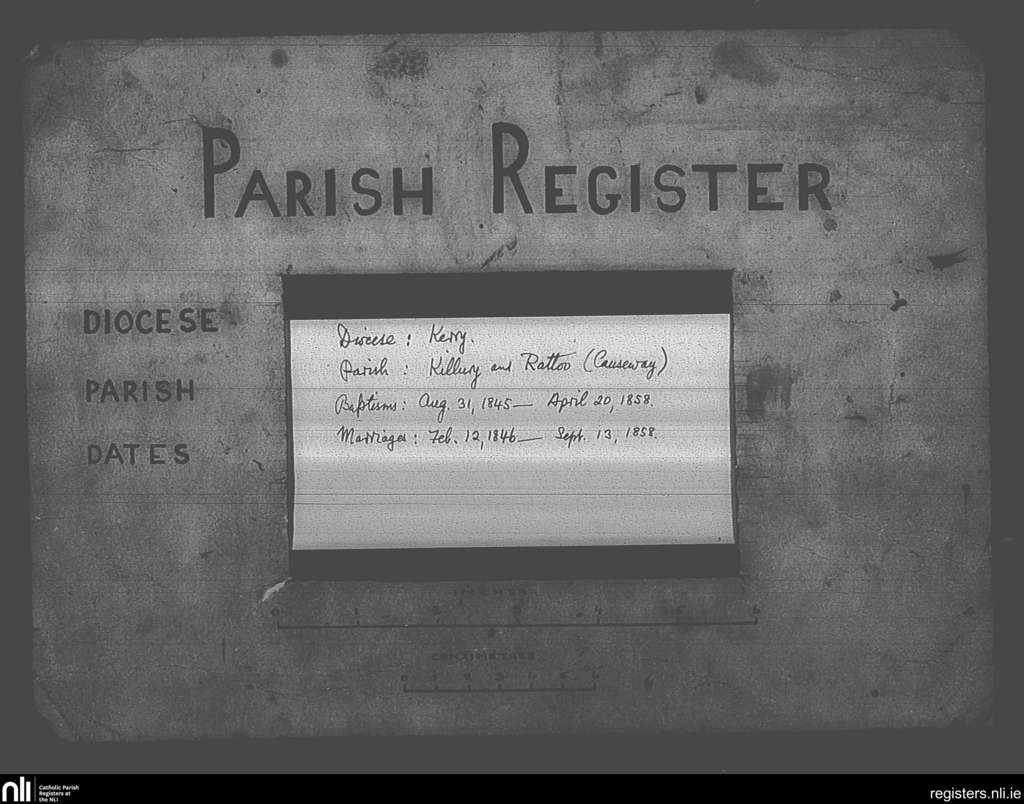 PARISH REGISTER
DIOCESE
PARISH
DATES
Diocese : Kerry.
Parish : Killury and Rattoo (Causeway)
Baptisms : Aug. 31, 1845 — April 20, 1858.
Marriages : Feb. 12, 1846 — Sept. 13, 1858.
INCHES
0 1 2 3 4 5 6
CENTIMETRES
0 1 2 3 4 5 6
nli
Catholic Parish
Registers at
the NLI
registers.nli.ie